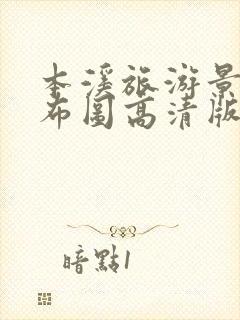 本溪旅游景
布图高清版
暗點1